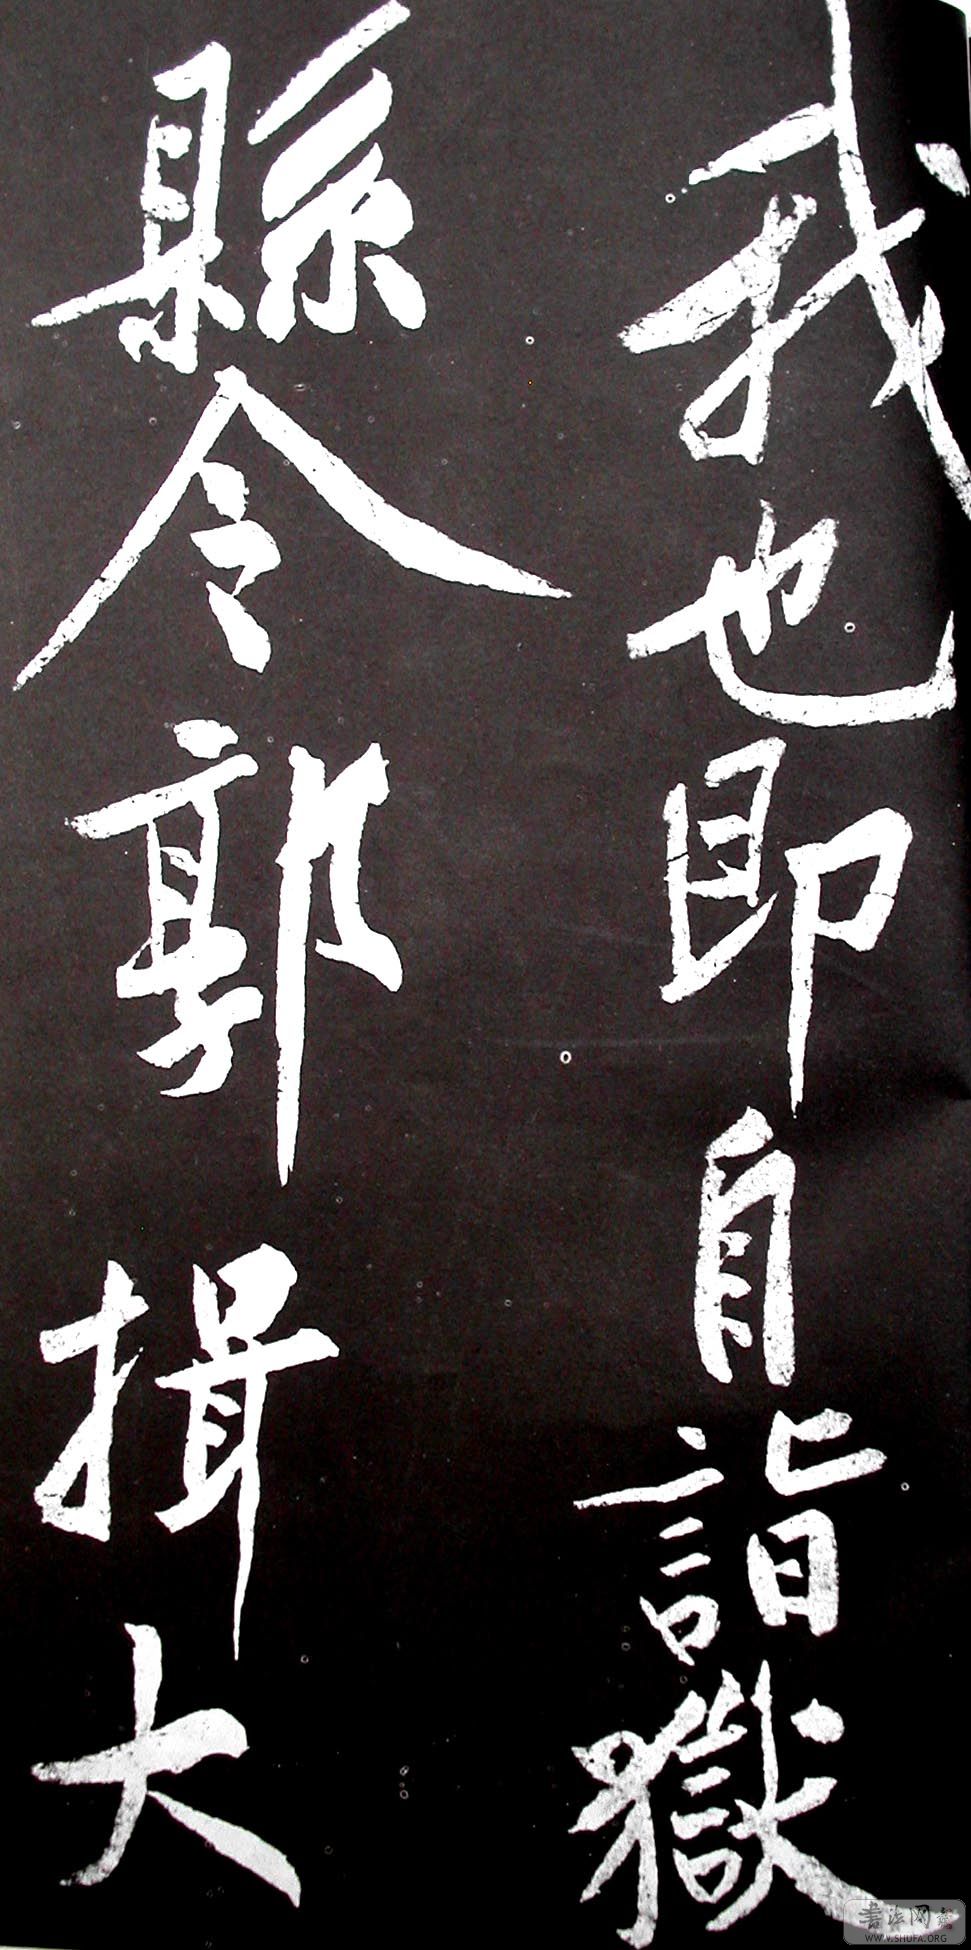 我也即自詣獄
縣令郭揖大
書法网
WWW.SHUFA.ORG